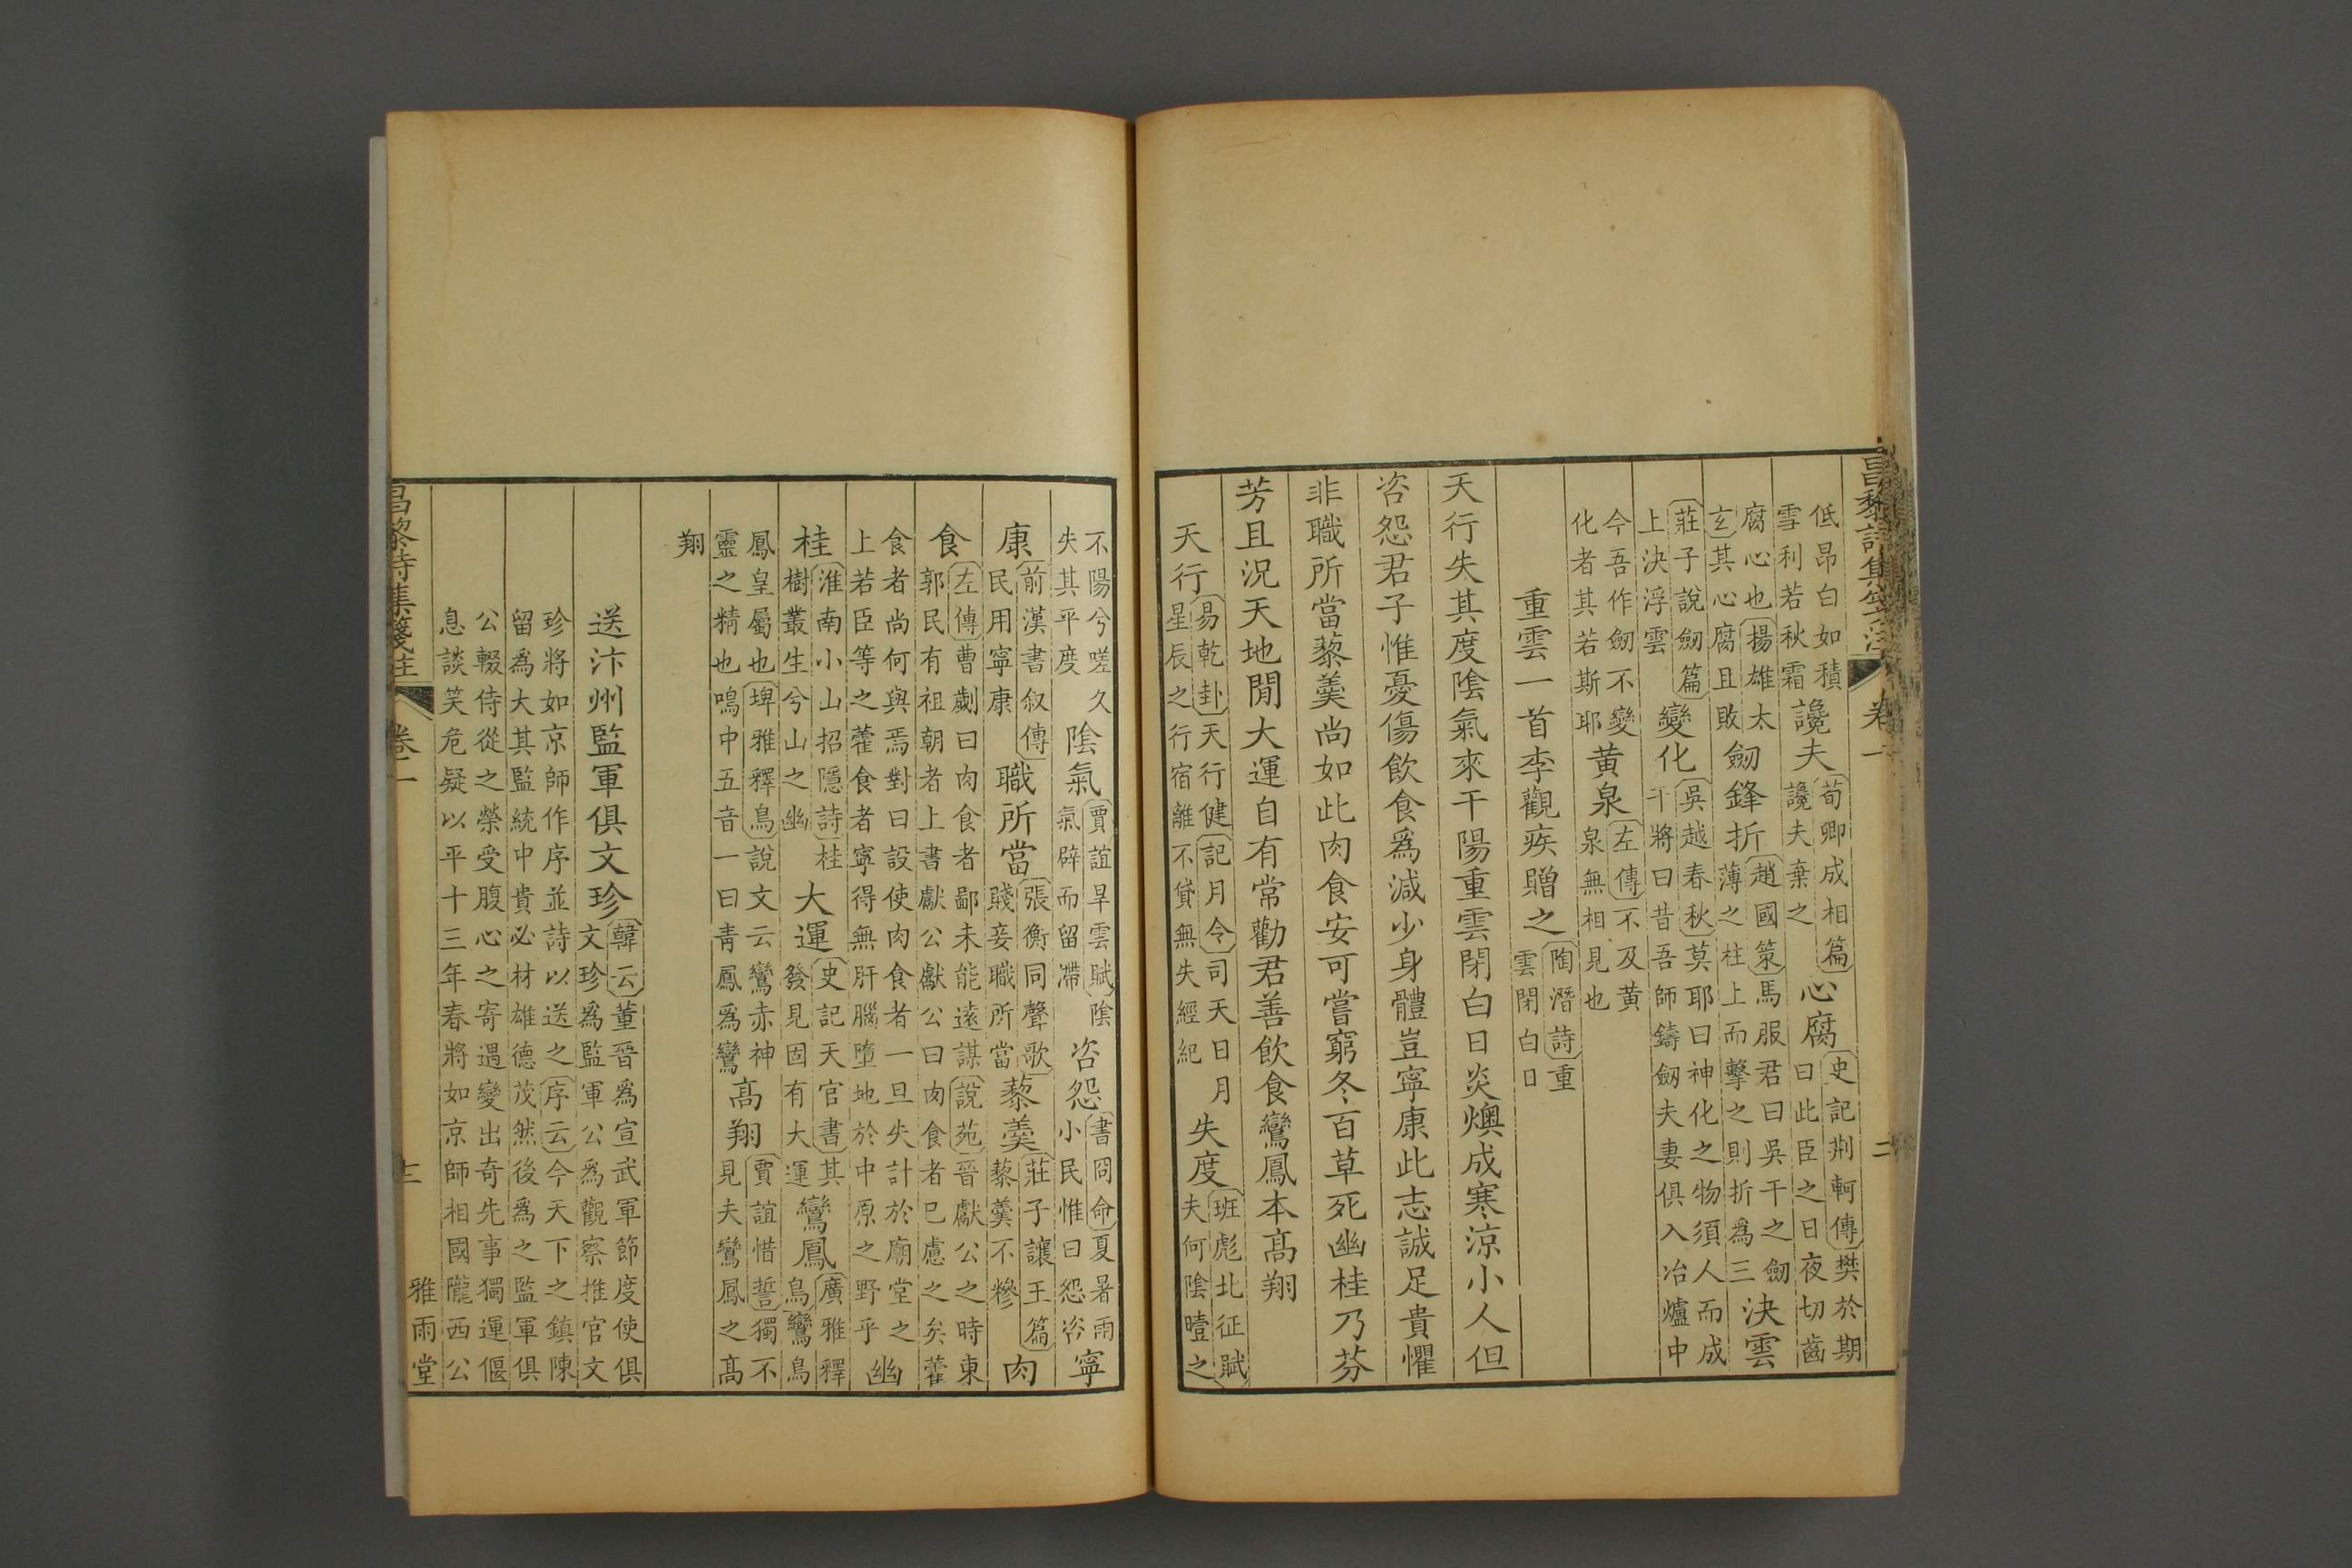 昌黎詩集箋注 卷一 二
低昂白如積
雪利若秋霜
讒夫
荀卿成相篇
讒夫棄之
心腐
史記荆軻傳樊於期
曰此臣之日夜切齒
腐心也揚雄太
玄其心腐且敗
劒鋒折
趙國策馬服君曰吳干之劒
薄之柱上而擊之則折爲三
決雲
莊子說劒篇
上決浮雲
變化
吳越春秋莫耶曰神化之物須人而成
干將曰昔吾師鑄劒夫妻俱入冶爐中
今吾作劒不變
化者其若斯耶
黄泉
左傳不及黄
泉無相見也
重雲一首李觀疾贈之
陶潛詩重
雲閉白日
天行失其度陰氣來干陽重雲閉白日炎燠成寒涼小人但
咨怨君子惟憂傷飲食爲減少身體豈寧康此志誠足貴懼
非職所當藜羹尚如此肉食安可嘗窮冬百草死幽桂乃芬
芳且況天地閒大運自有常勸君善飲食鸞鳳本高翔
天行
易乾卦天行健記月令司天日月
星辰之行宿離不貸無失經紀
失度
班彪北征賦
夫何陰曀之
不陽兮嗟久
失其平度
陰氣
賈誼旱雲賦陰
氣辟而留滯
咨怨
書冏命夏暑雨
小民惟曰怨咨
寧
康
前漢書叙傳
民用寧康
職所當
張衡同聲歌
賤妾職所當
藜羹
莊子讓王篇
藜羹不糝
肉
食
左傳曹劌曰肉食者鄙未能遠謀說苑晉獻公之時東
郭民有祖朝者上書獻公獻公曰肉食者已慮之矣藿
食者尚何與焉對曰設使肉食者一旦失計於廟堂之
上若臣等之藿食者寧得無肝腦墮地於中原之野乎
幽
桂
淮南小山招隱詩桂
樹叢生兮山之幽
大運
史記天官書其
發見固有大運
鸞鳳
廣雅釋
鳥鸞鳥
鳳皇屬也埤雅釋鳥說文云鸞赤神
靈之精也鳴中五音一曰青鳳爲鸞
高翔
賈誼惜誓獨不
見夫鸞鳳之高
翔
送汴州監軍俱文珍
韓云董晉爲宣武軍節度使俱
文珍爲監軍公爲觀察推官文
珍將如京師作序並詩以送之序云今天下之鎮陳
留爲大其監統中貴必材雄德茂然後爲之監軍俱
公輟侍從之榮受腹心之寄遇變出奇先事獨運偃
息談笑危疑以平十三年春將如京師相國隴西公
昌黎詩集箋注 卷一
雅雨堂